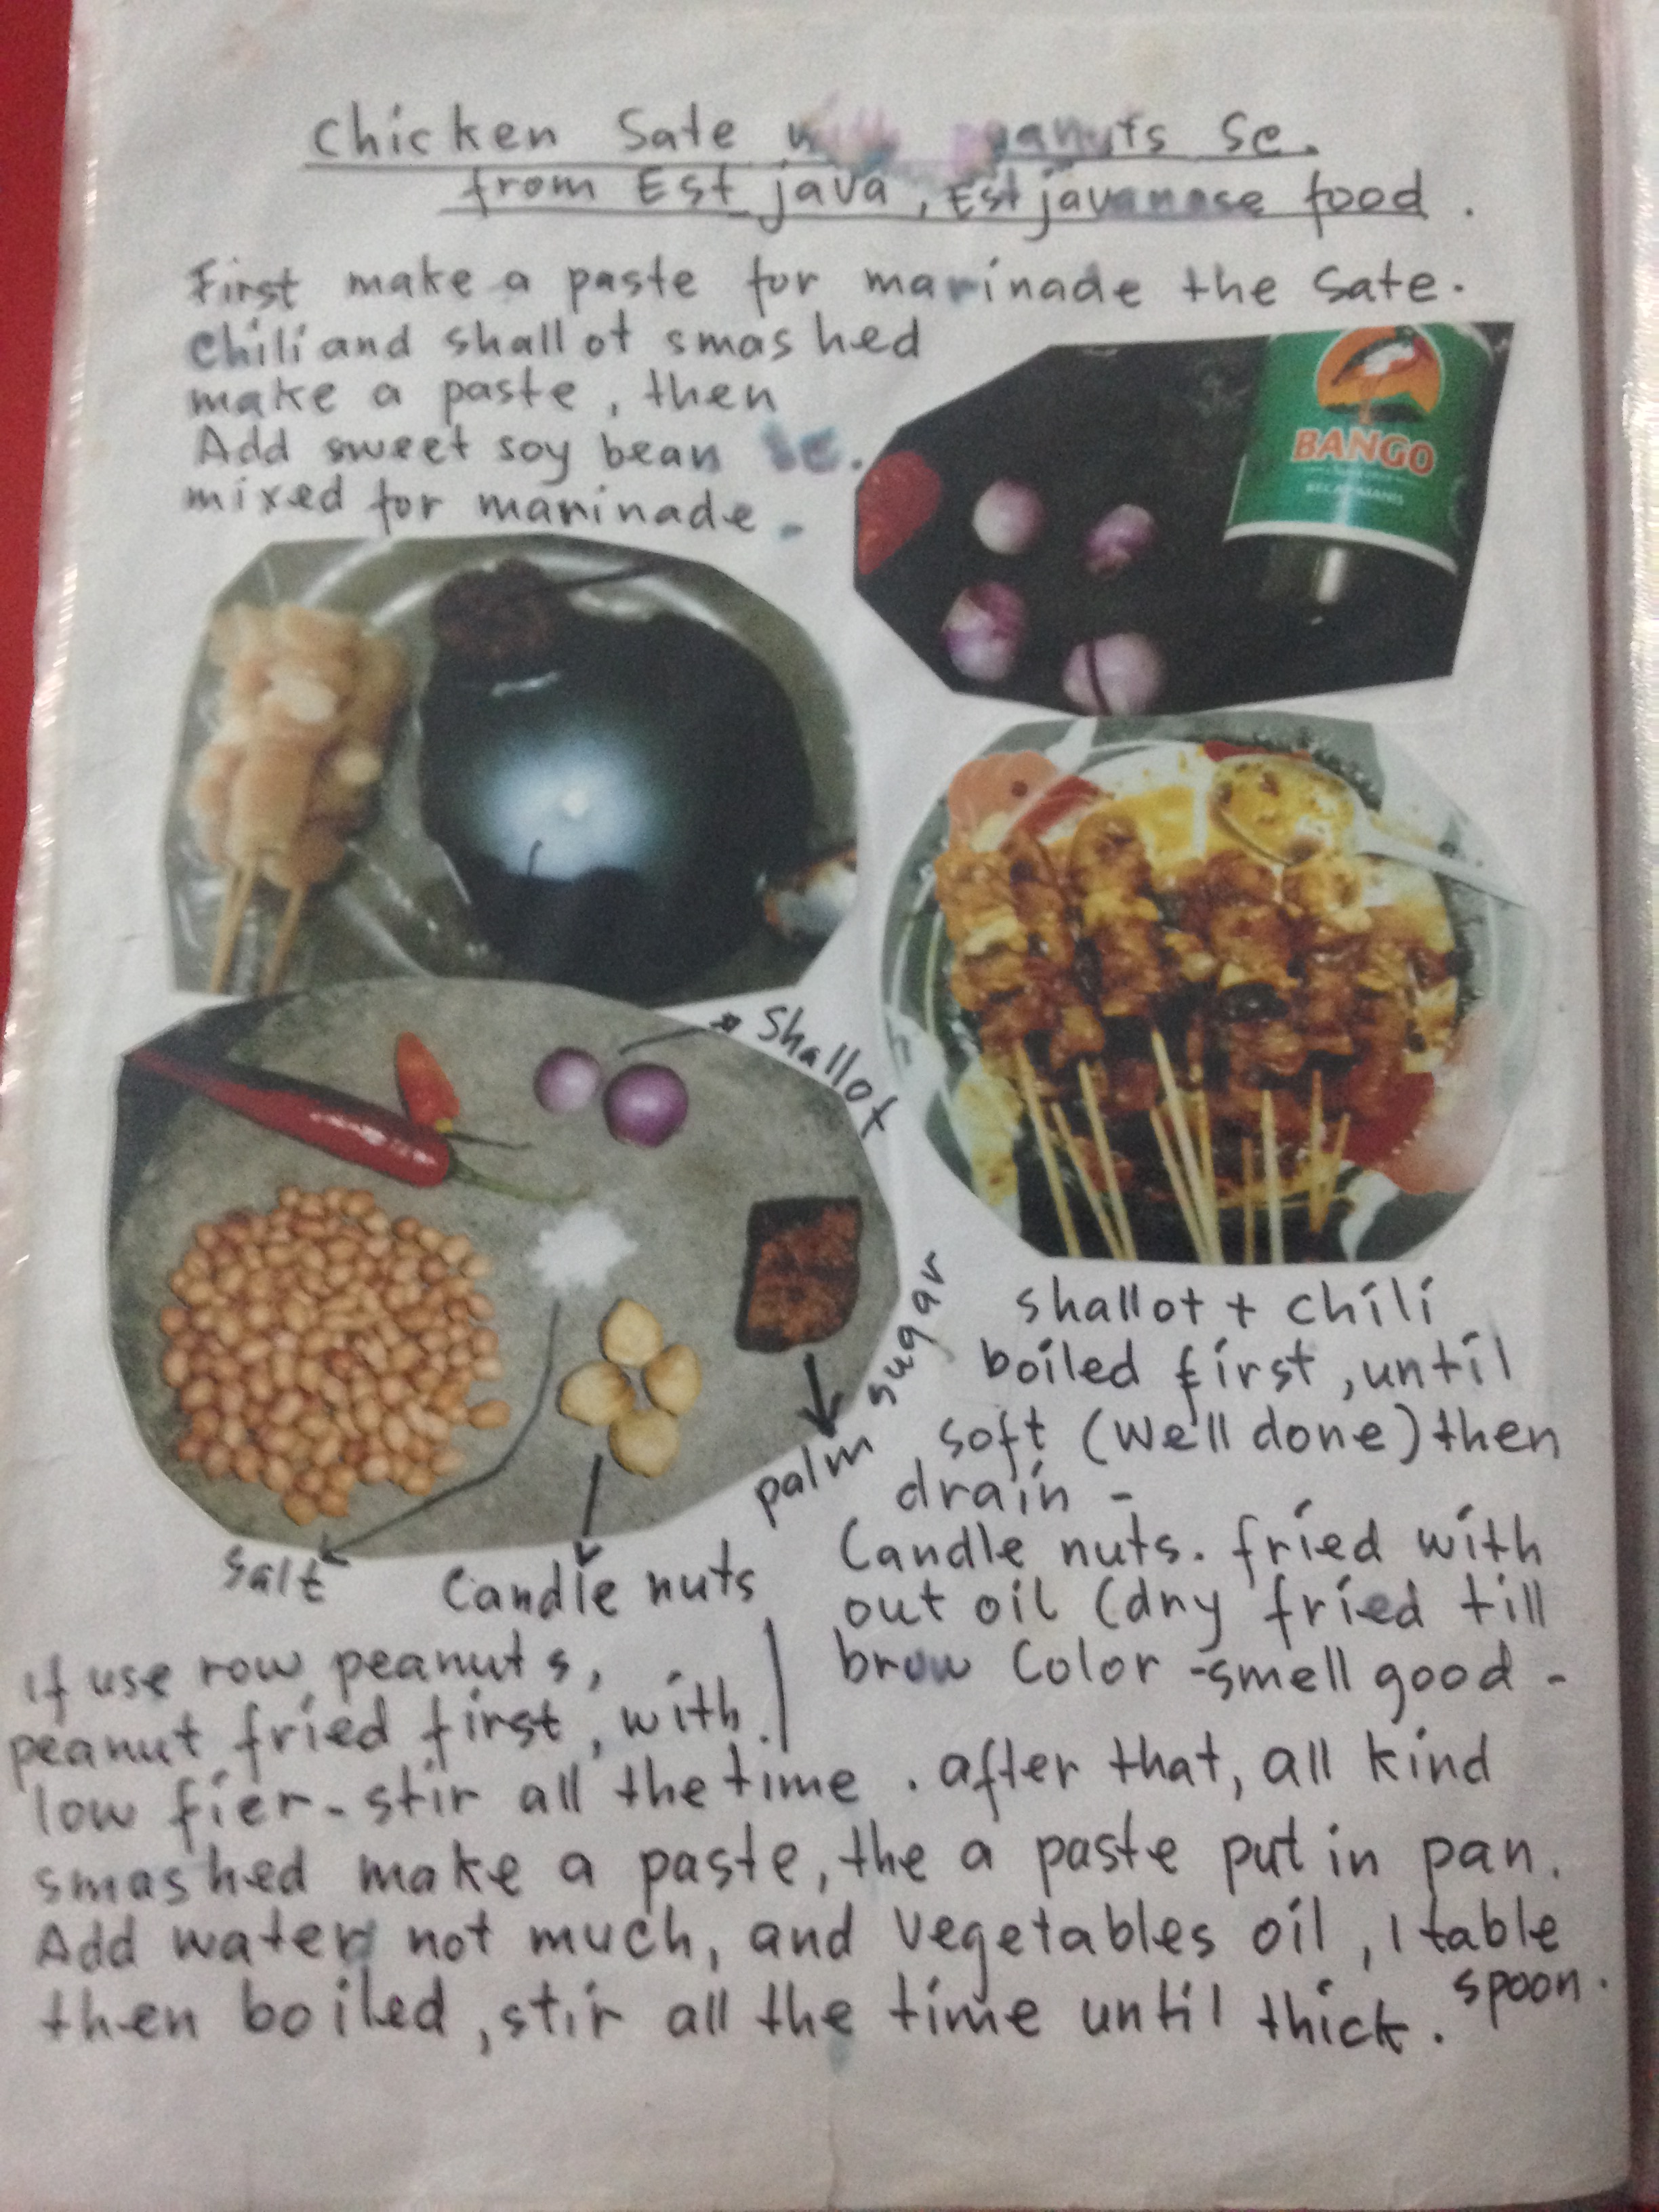 Chicken Sate with peanuts Sc.
from Est java, Est javanese food.
First make a paste for marinade the Sate.
Chili and shallot smashed
make a paste, then
Add sweet soy bean Sc.
mixed for marinade -
BANGO
KECAP MANIS
shallot
palm sugar
salt
Candle nuts
shallot + chili
boiled first, until
soft (we'll done) then
drain -
Candle nuts. fried with
out oil (dry fried till
brow Color - smell good -
if use row peanuts,
peanut fried first, with
low fier - stir all the time. after that, all kind
smashed make a paste, the a paste put in pan.
Add water not much, and vegetables oil, 1 table
spoon.
then boiled, stir all the time until thick.